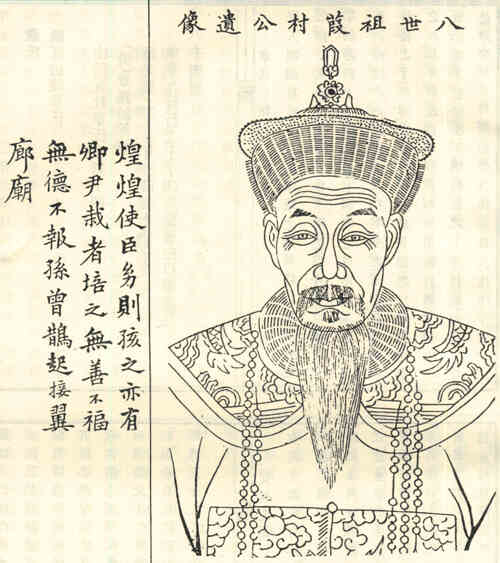 八世祖葭村公遺像
煌煌使臣㓜則孩之亦有
卿尹栽者培之無善不福
無德不報孫曾鵲起接翼
廊廟